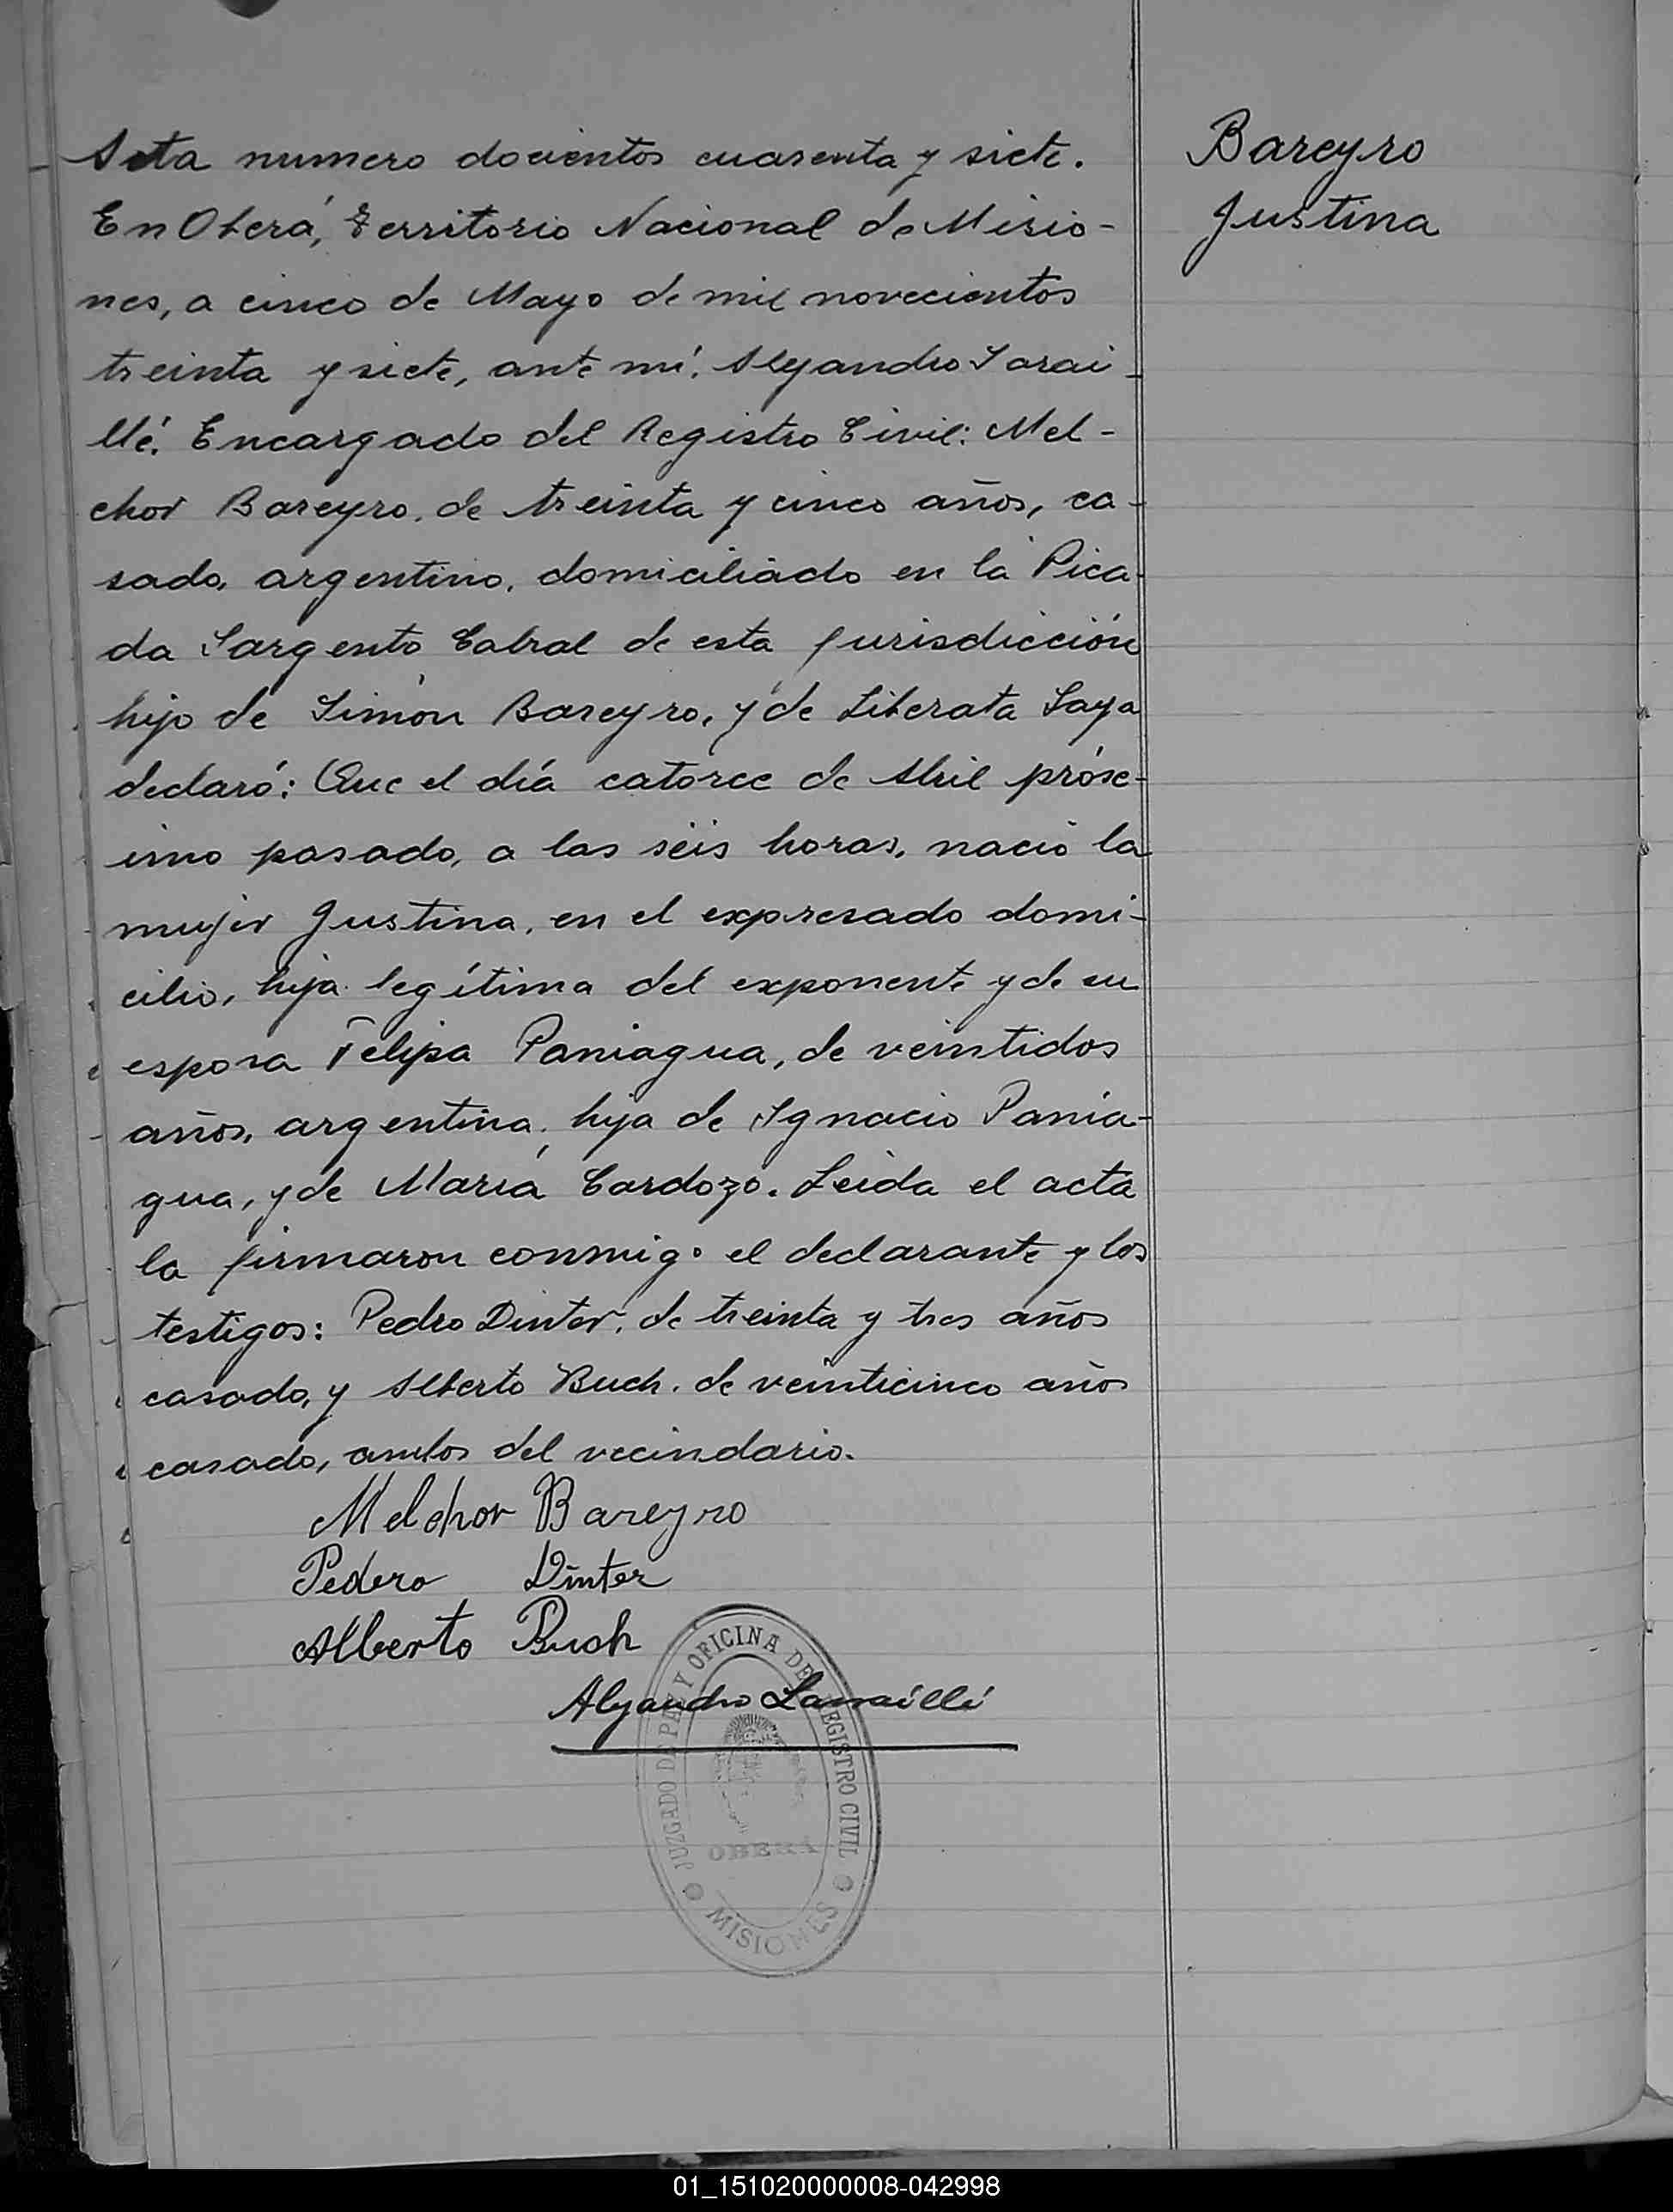 Acta numero docientos cuarenta y siete.
En Oberá, Territorio Nacional de Misio-
nes, a cinco de Mayo de mil novecientos
treinta y siete, ante mí, Alejandro
Encargado del Registro Civil: Mel-
chor Bareyro, de treinta y cinco años, ca-
sado, argentino, domiciliado en la Pica-
da Sargento Cabral de esta jurisdicción
hijo de Simón Bareyro, y de Liberata
declaró: Que el día catorce de Abril próxi-
imo pasado, a las seis horas, nació la
mujer Justina, en el expresado domi-
cilio, hija legítima del exponente y de su
esposa Felipa Paniagua, de veintidos
años, argentina, hija de Ignacio Pania-
gua, y de María Cardozo. Leída el acta
la firmaron conmigo el declarante y los
testigos: Pedro Dinter, de treinta y tres años
casado, y Alberto Buch, de veinticinco años
casado, ambos del vecindario.
Melchor Bareyro
Pedero Dinter
Alberto Buch
Alejandro
JUZGADO DE PAZ Y OFICINA DEL REGISTRO CIVIL
OBERÁ
MISIONES
Bareyro
Justina
01_151020000008-042998